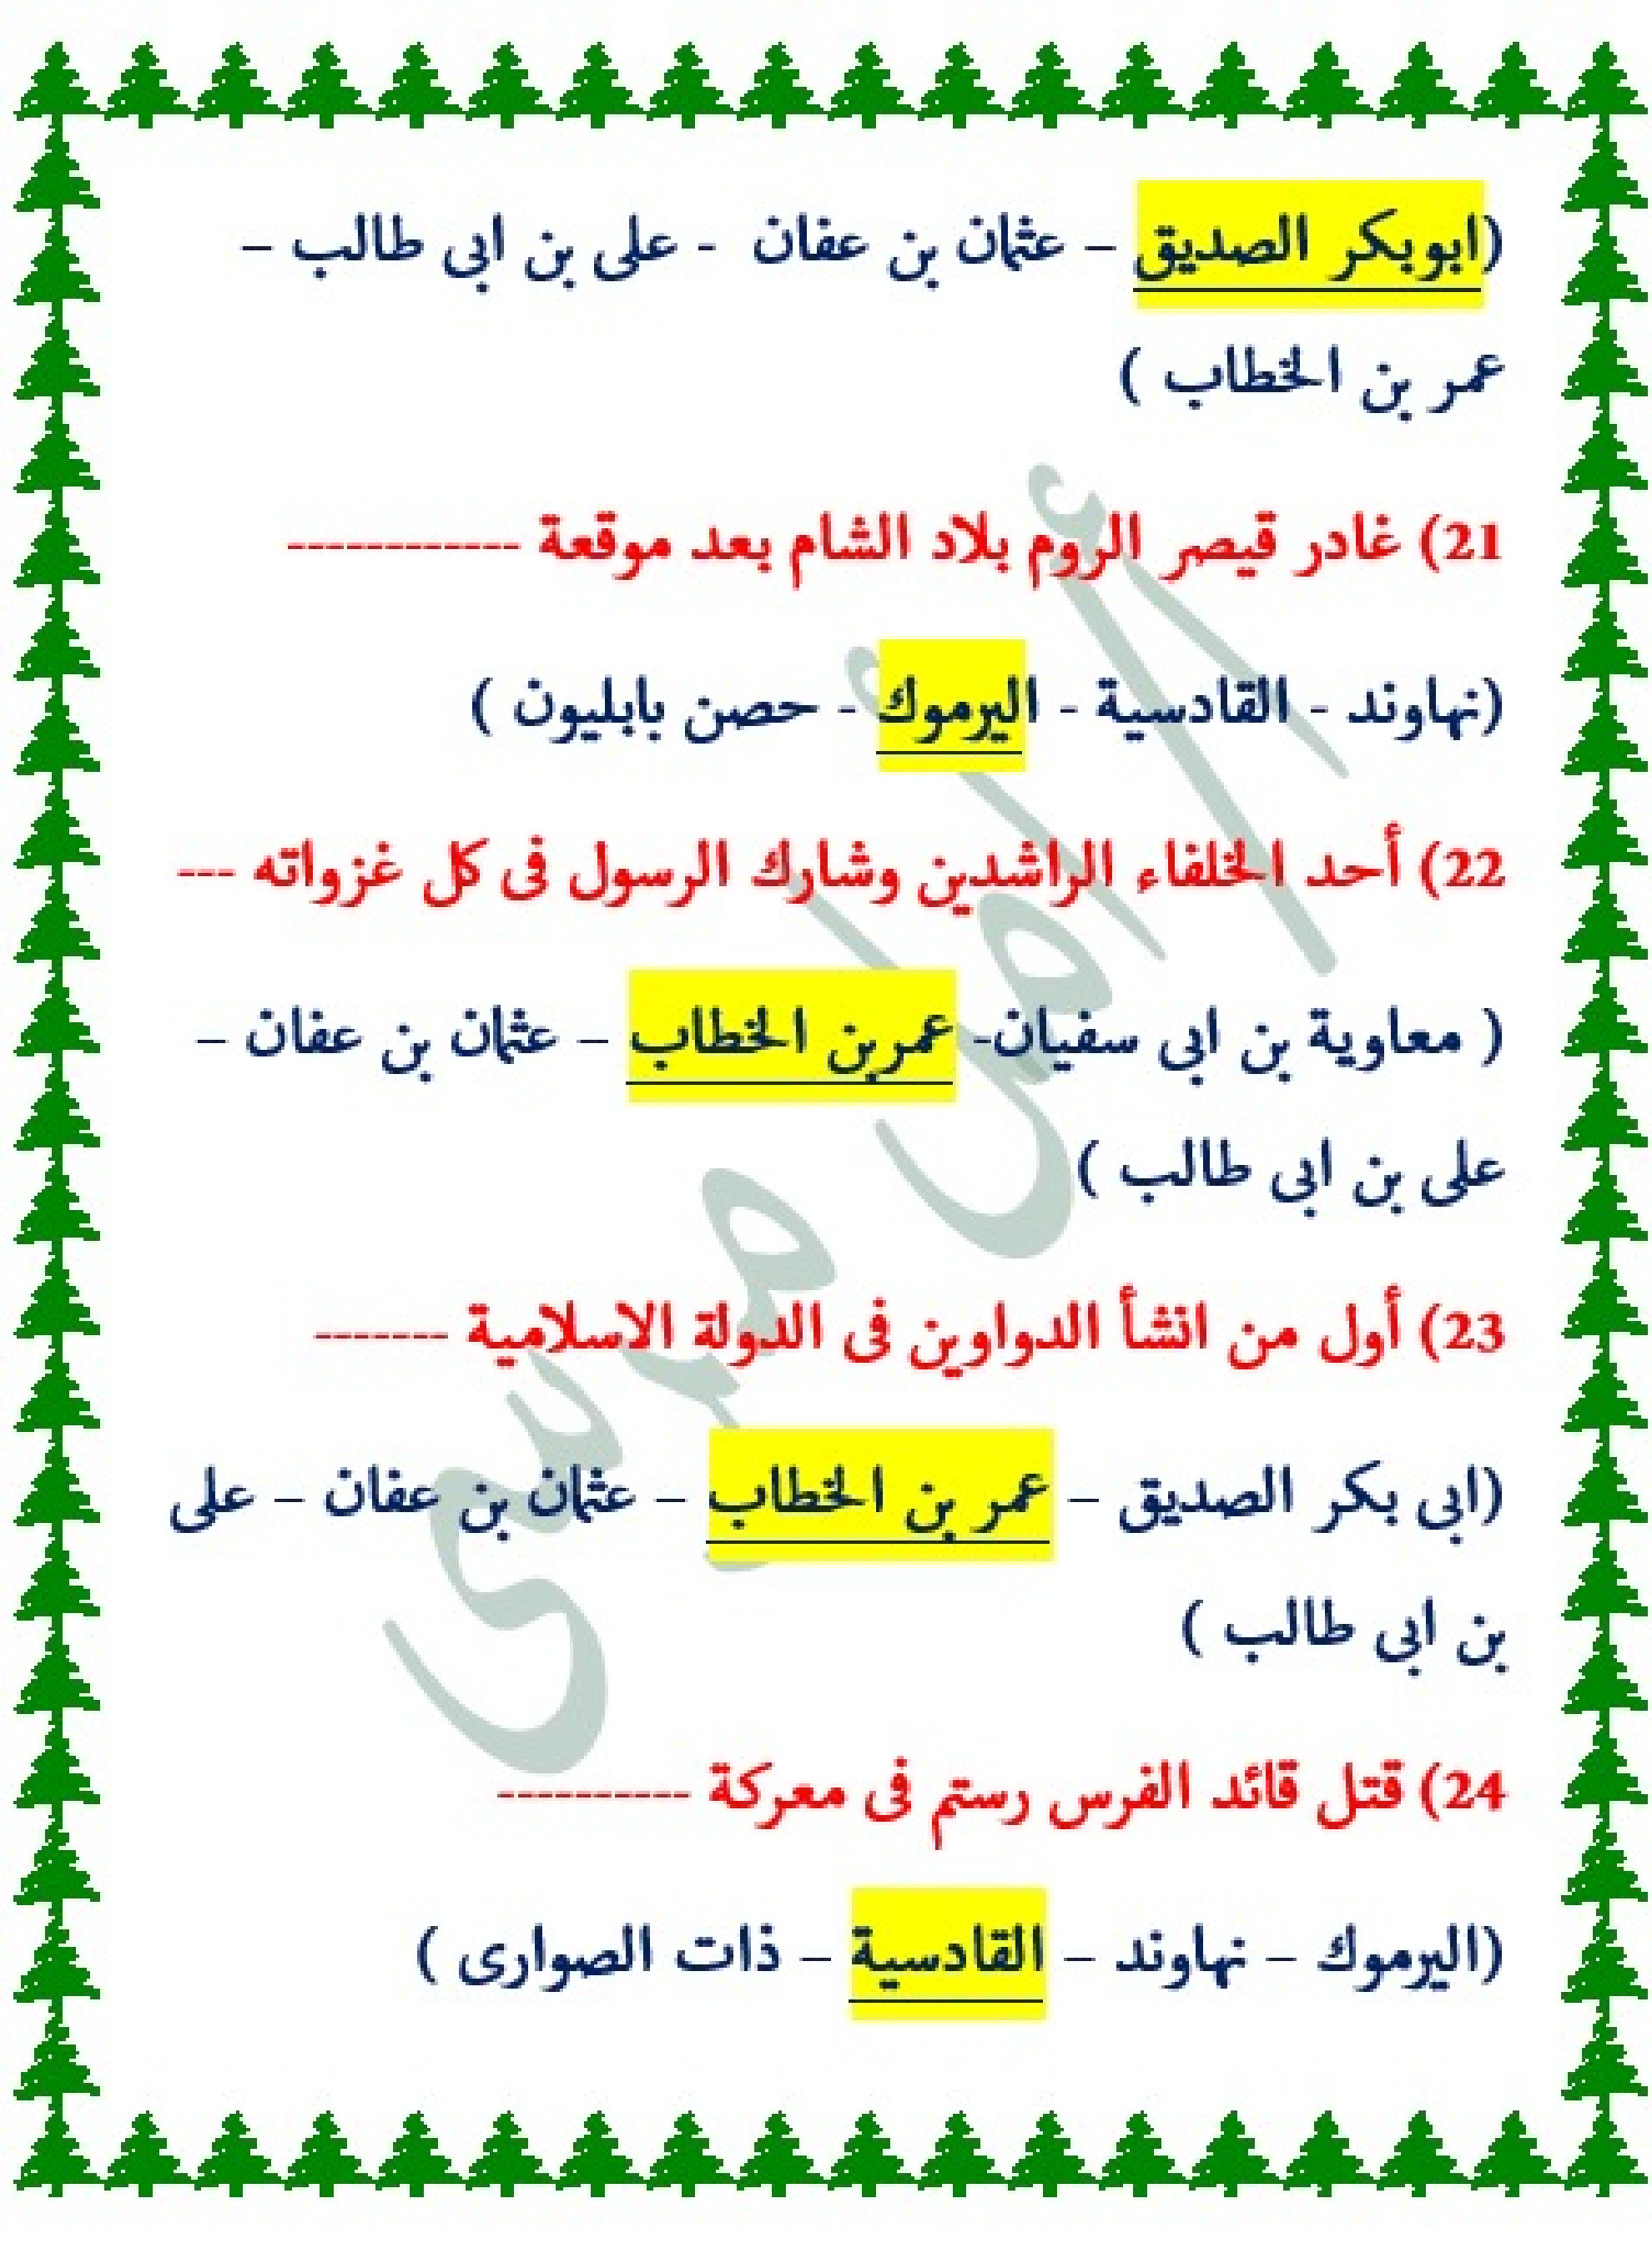 (ابوبكر الصديق – عثمان بن عفان - على بن ابى طالب –
عمر بن الخطاب )
21) غادر قيصر الروم بلاد الشام بعد موقعة ------------
(نهاوند - القادسية - اليرموك - حصن بابليون )
22) أحد الخلفاء الراشدين وشارك الرسول فى كل غزواته ---
( معاوية بن ابى سفيان- عمربن الخطاب – عثمان بن عفان –
على بن ابى طالب )
23) أول من انشأ الدواوين فى الدولة الاسلامية -------
(ابى بكر الصديق – عمر بن الخطاب – عثمان بن عفان – على
بن ابى طالب )
24) قتل قائد الفرس رستم فى معركة ----------
(اليرموك – نهاوند – القادسية – ذات الصوارى )